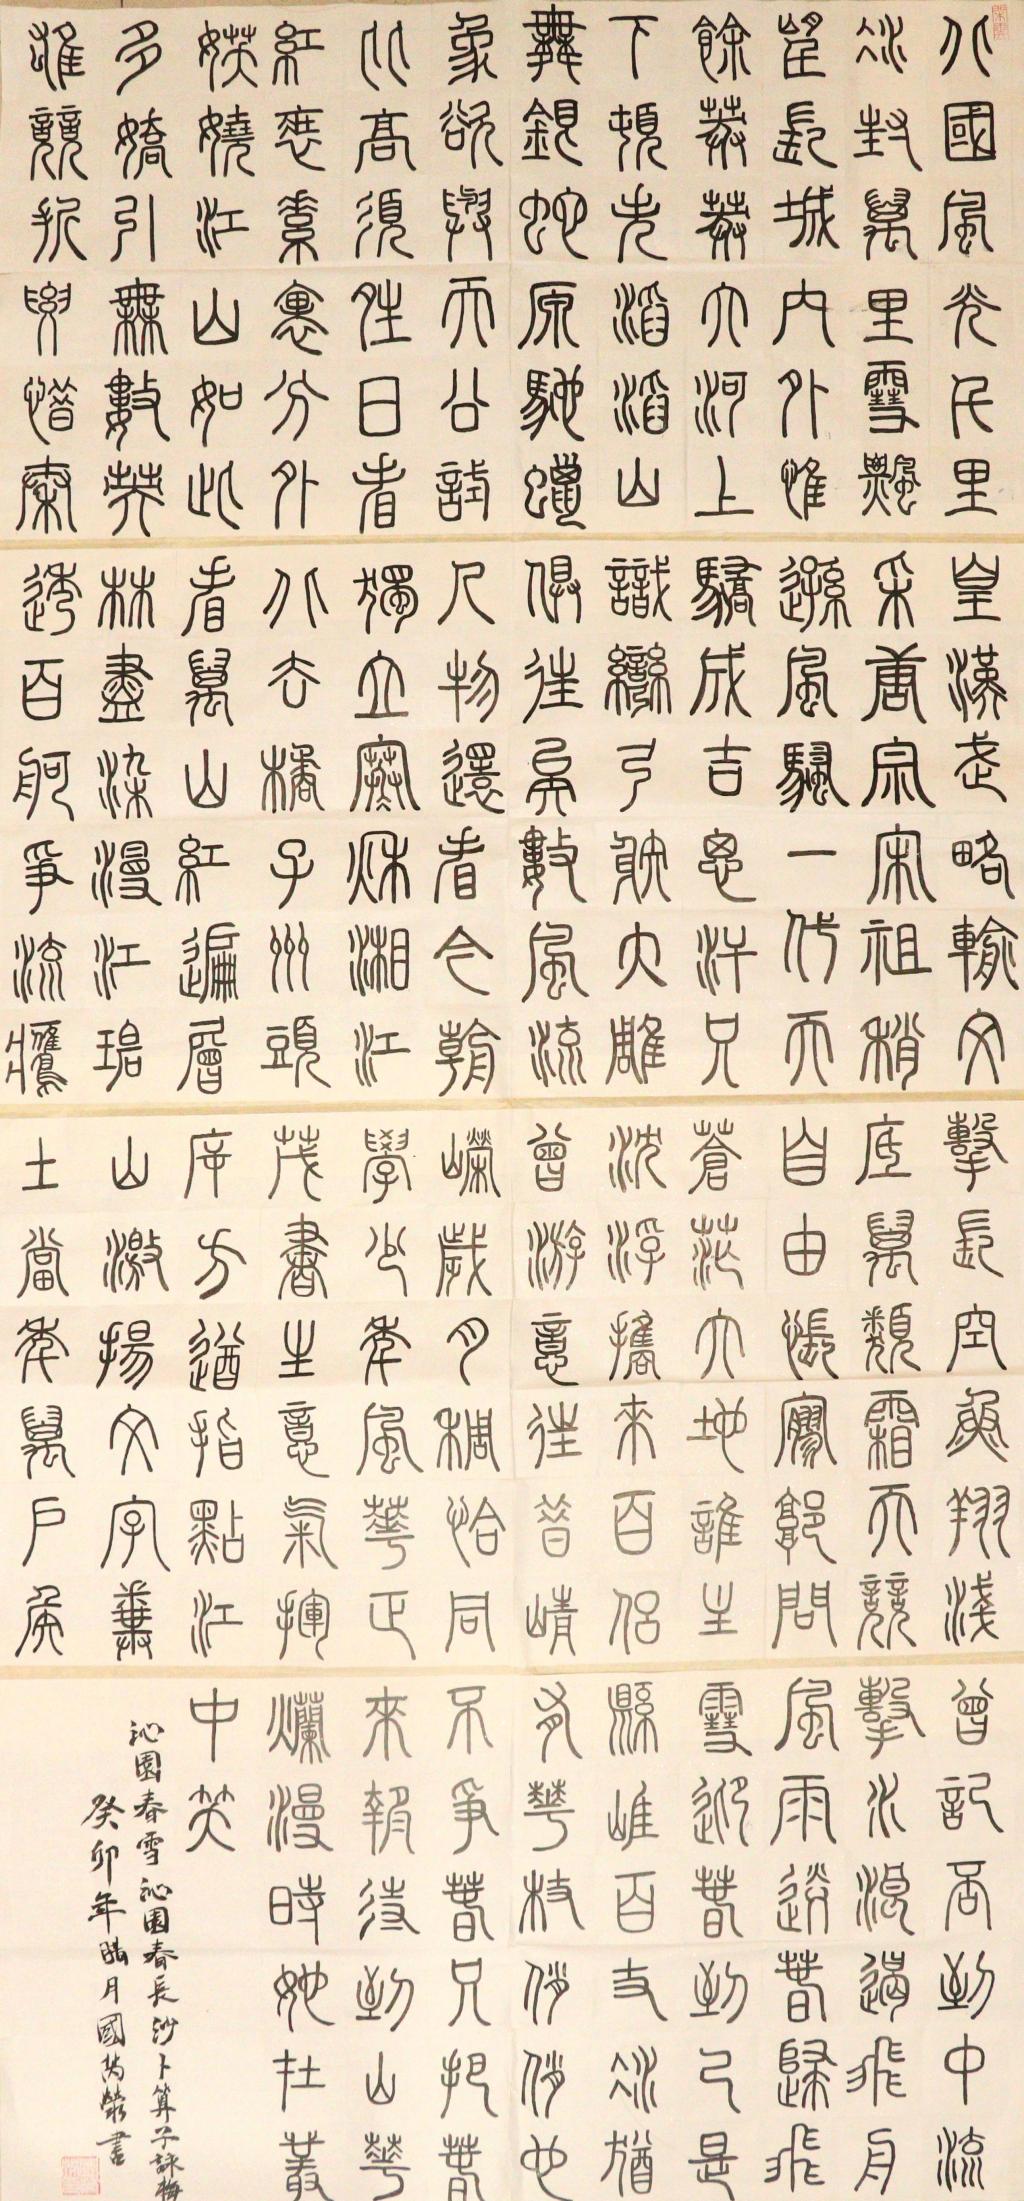 北國風光千里
冰封萬里雪飄
望長城內外惟
餘莽莽大河上
下頓失滔滔山
舞銀蛇原馳蠟
象欲與天公試
比高須晴日看
紅裝素裹分外
妖嬈江山如此
多嬌引無數英
雄競折腰惜秦
皇漢武略輸文
采唐宗宋祖稍
遜風騷一代天
驕成吉思汗只
識彎弓射大雕
俱往矣數風流
人物還看今朝
獨立寒秋湘江
北去橘子洲頭
看萬山紅遍層
林盡染漫江碧
透百舸爭流鷹
擊長空魚翔淺
底萬類霜天競
自由悵寥廓問
蒼茫大地誰主
沈浮攜來百侶
曾游憶往昔崢
嶸歲月稠恰同
學少年風華正
茂書生意氣揮
斥方遒指點江
山激揚文字糞
土當年萬戶侯
曾記否到中流
擊水浪遏飛舟
風雨送春歸飛
雪迎春到已是
懸崖百丈冰猶
有花枝俏俏也
不爭春只把春
來報待到山花
爛漫時她在叢
中笑
沁園春雪 沁園春長沙卜算子詠梅
癸卯年臘月國榮書